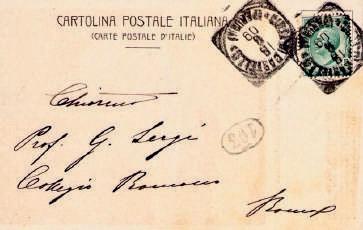 CARTOLINA POSTALE ITALIANA
(CARTE POSTALE D'ITALIE)
Chiarmo
Prof. G. Sergi
Collegio Romano
Roma
103